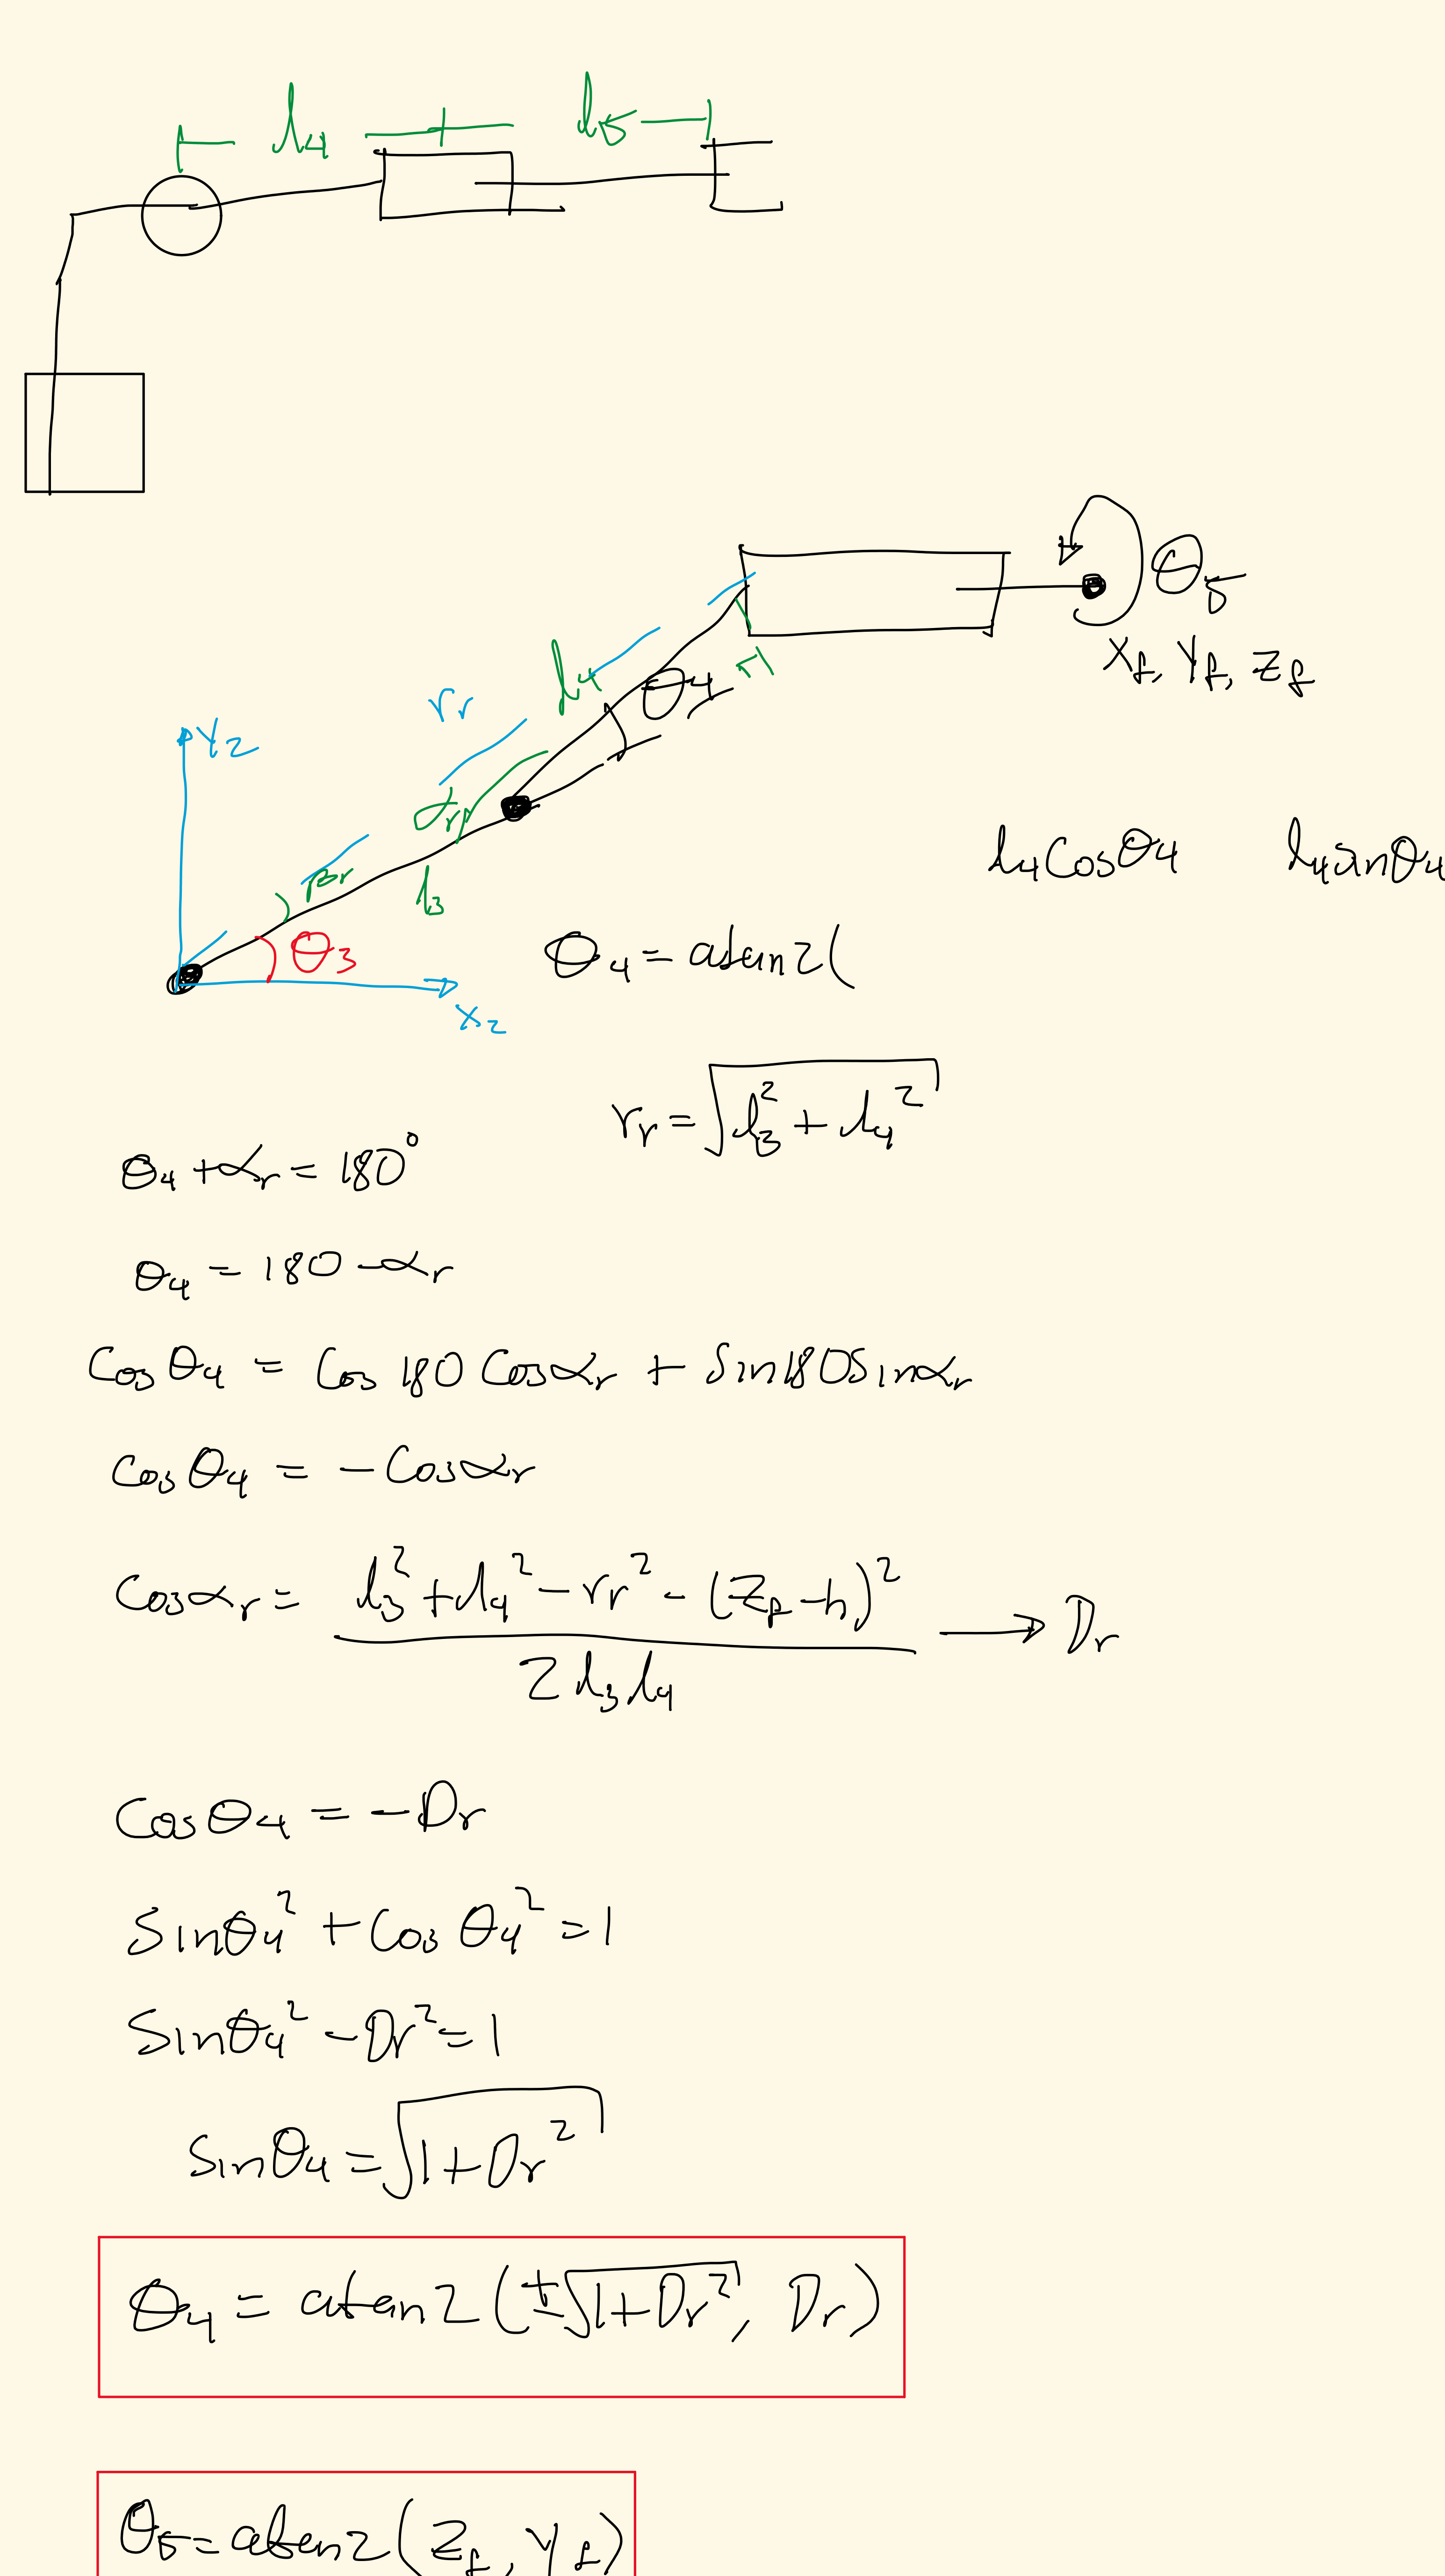 l₄ l₅
θ₅
x_f, y_f, z_f
l₄ θ₄ r₁
r_r
Y₂
α_r
β_r l₃
l₄Cosθ₄ l₄sinθ₄
θ₃ θ₄ = atan2(
X₂
r_r = √(l₃² + l₄²)
θ₄ + α_r = 180°
θ₄ = 180 - α_r
Cosθ₄ = Cos180Cosα_r + Sin180Sinα_r
Cosθ₄ = -Cosα_r
Cosα_r = (l₃² + l₄² - r_r² - (z_f - h)²) / 2l₃l₄ → D_r
Cosθ₄ = -D_r
Sinθ₄² + Cosθ₄² = 1
Sinθ₄² - D_r² = 1
Sinθ₄ = √(1 + D_r²)
θ₄ = atan2(±√(1 + D_r²), D_r)
θ₅ = atan2(z_f, y_f)